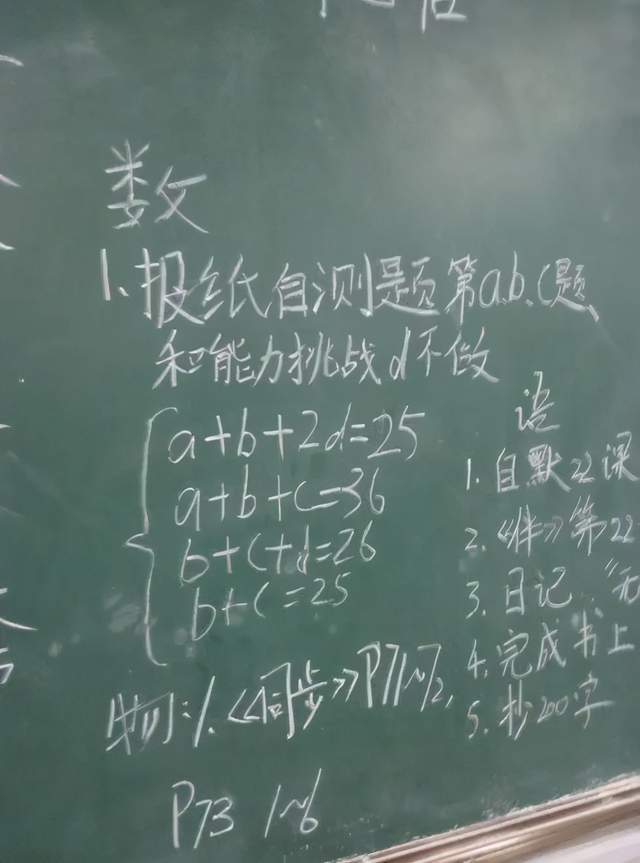 数
1.报纸自测题第a.b.c题、
和能力挑战d不做
a+b+2d=25
a+b+c=36
b+c+d=26
b+c=25
物:1.《同步》P71~72,
P73 1~6
语
1.自默22课
2.《伴》第22
3.日记:“无
4.完成书上
5.抄200字